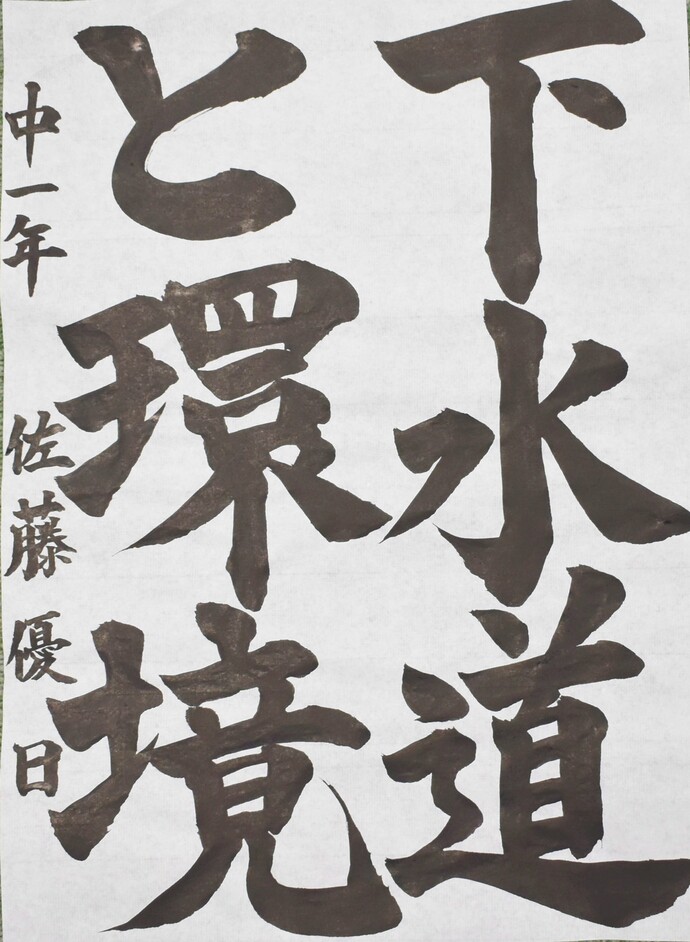 下水道
と環境
中一年 佐藤優日